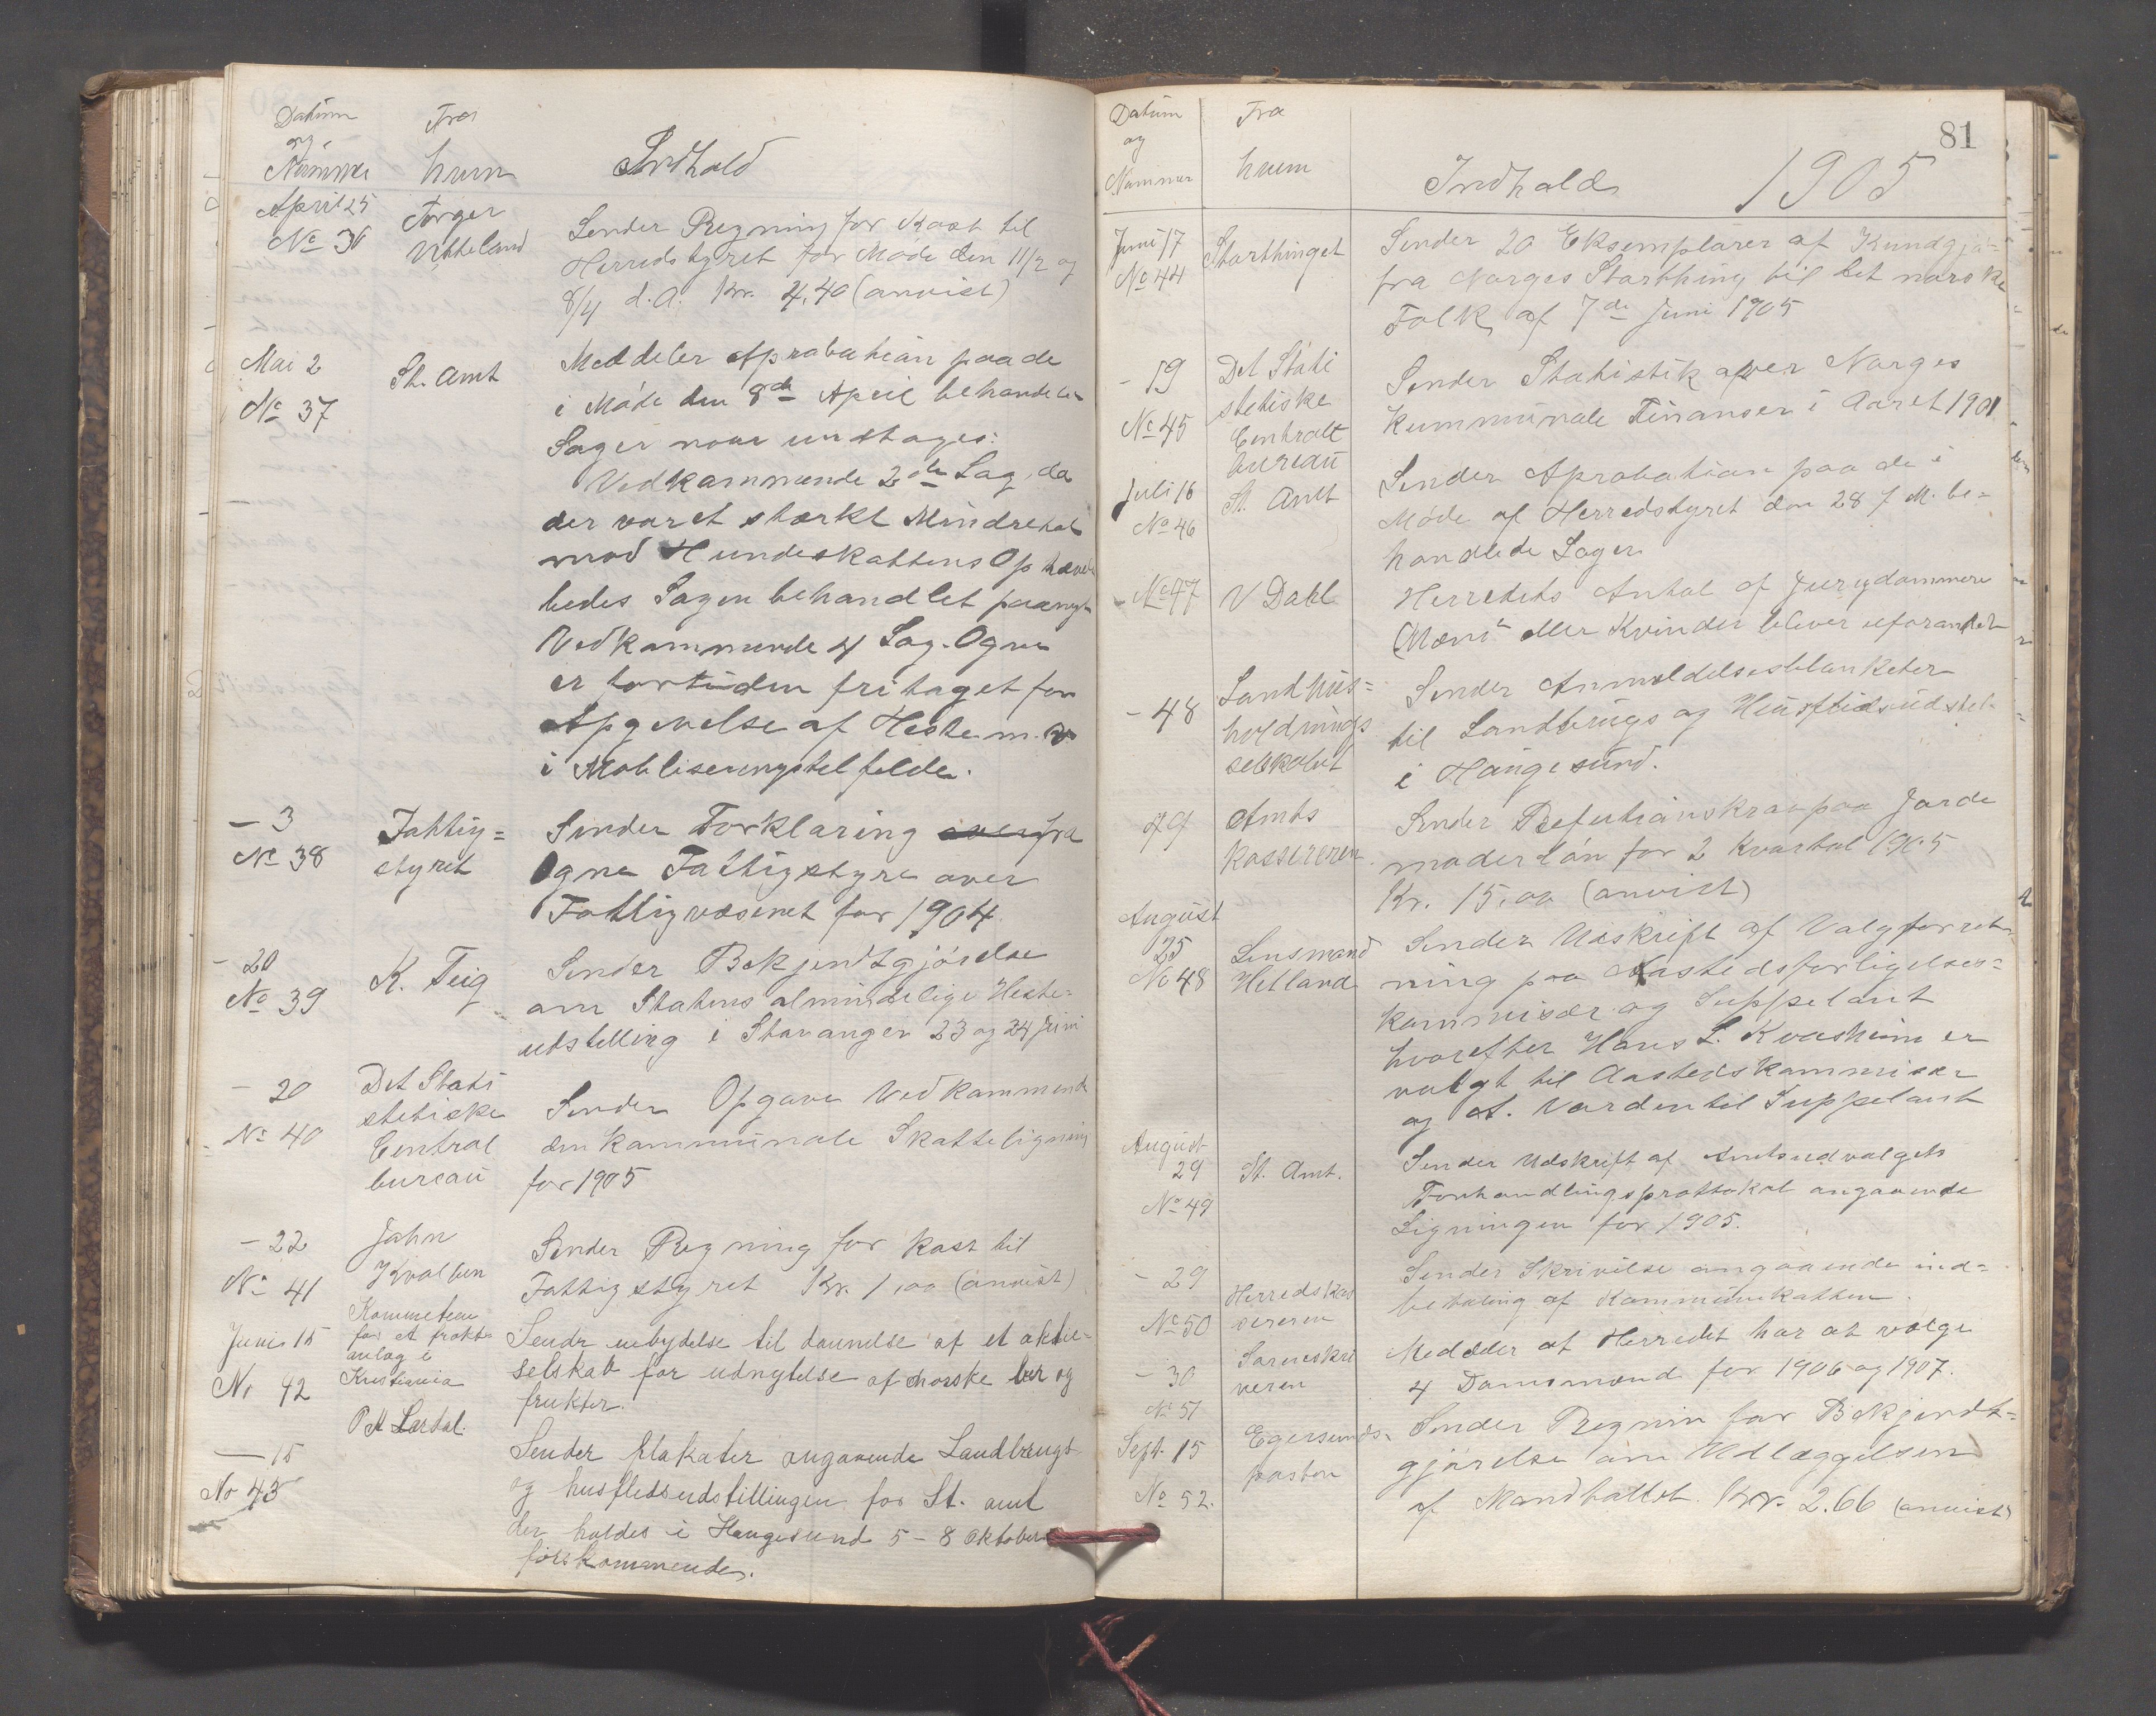 Datum
og
Nummer
Fra
hvem
Indhold
April 25
No 36
Torger
Vetteland
Sender Regning for Kost til
Herredstyret for Møde den 11/2 og
8/4 d.A. Kr. 4,40 (anvist)
Mai 2
No 37
St. Amt
Meddeler Aprobation paa de
i Møde den 8de April behandlede
Sager naar undtages:
Vedkammende 2den Sag, da
der var et stærkt Mindretal
mod Hundeskattens Ophæve
bedes Sagen behandlet paany
Vedkammende 4 Sag. Ogne
er fortiden fritaget for
Afgivelse af Heste m.v
i Mobliseringstelfelde.
- 3
No 38
Fattig=
styret
Sender Forklaring over fra
Ogne Fattigstyre over
Fattigvæsenet for 1904.
- 20
No 39
K. Teig
Sender Bekjendtgjørelse
om Statens almindelige Heste-
udstelling i Stavanger 23 og 24 Juni
- 20
No 40
Det Stati
stetiske
Central
bureau
Sender Opgave Vedkammende
den kammunale Skatteligning
for 1905
- 22
No 41
John
Kvalben
Sender Regning for kost til
Fattigstyret Kr. 1,00 (anvist)
Juni 15
No 42
Kommeteen
for et frukt-
anlæg i
Kristiania
P A Lærdal.
Sendr inbydelse til dannelse af et aktie-
selskab for udnyttelse af norske bær og
frukter.
- 15
No 43
Sender plakater angaaende Landbrugs
og husflidsudstillingen for St. amt
der holdes i Haugesund 5 - 8 Oktober
førstkommende.
81
Datum
og
Nummer
Fra
hvem
Indhold
1905
Juni 17
No 44
Storthinget
Sender 20 Eksemplarer af Kundgjø-
fra Norges Storthing til det norske
Folk af 7de Juni 1905
- 19
No 45
Det Stati
stetiske
Centralt
bureau
Sender Statistik over Norges
Kummunale Finanser i Aaret 1901
Juli 16
No 46
St. Amt
Sender Aprobation paa de i
Møde af Herredstyret den 28 f. M. be=
handlede Sager
- No 47
V Dahl
Herredets Antal af Jurydommere
Mænd eller Kvinder bliver uforandret
- 48
Landhus=
holdnings
selskabet
Sender Anmeldelsesblanketer
til Landbrugs og Husflidsudstel-
i Haugesund.
49
Amts
kassereren
Sender Refutionskrav paa Jorde
moderløn for 2 Kvartal 1905
Kr. 15,00 (anvist)
August
25
No 48
Lensmand
Hetland
Sender Udskrift af Valgforret-
ning paa Aastedsforligelses=
kommisær og Suppelant
hvorefter Hans L. Kvasheim er
valgt til Aastedskommisær
og A. Varden til Suppelant
August
29
No 49
St. Amt.
Sender Udskrift af Amtsudvalgets
Forhandlingsprottokol angaaende
Ligningen for 1905.
- 29
No 50
Herredskas
sereren
Sender Skrivelse angaaende ind=
betaling af Kammuneskatten.
- 30
No 51
Sorenskri
veren
Meddeler at Herredet har at vælge
4 Domsmænd for 1906 og 1907.
Sept. 15
No 52.
Egersunds-
posten
Sender Regnin for Bekjendt=
gjørelse om Udlæggelsen
af Mandtallet. Kr. 2.66 (anvist)